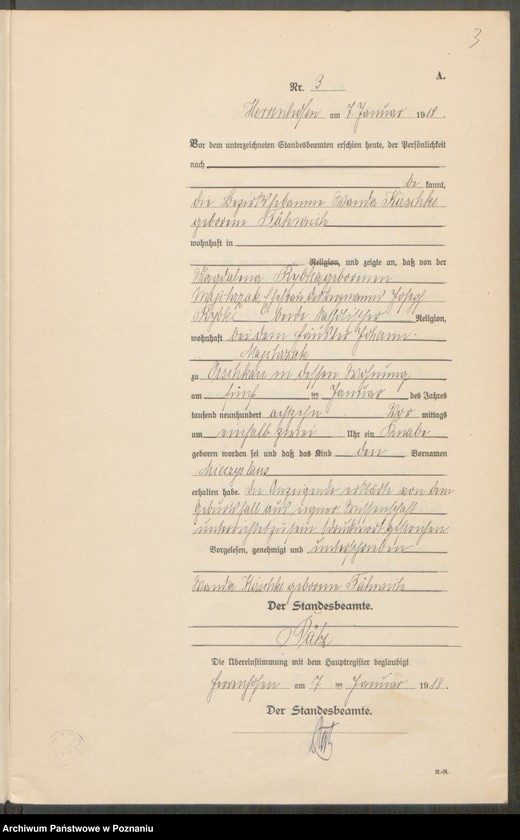 3
A.
Nr. 3
am 7 Januar 1918.
Vor dem unterzeichneten Standesbeamten erschien heute, der Persönlichkeit
nach
be kannt,
die Bezirkshebamme Wanda Kirschke
geborene Fähnrich
wohnhaft in
Religion, und zeigte an, daß von der
Magdalena geborenen
Ehefrau des Josef
beide Religion,
wohnhaft bei dem Häusler Johann
zu in dessen Wohnung
am fünf ten Januar des Jahres
tausend neunhundert achtzehn Vor mittags
um einhalb zwei Uhr ein Knabe
geboren worden sei und daß das Kind den Vornamen
Mieczyslaus
erhalten habe. Die Anzeigende erklärte von dem
Geburtsfall aus eigner Wissenschaft
unterrichtet zu sein. 1 Druckwort gestrichen
Vorgelesen, genehmigt und unterschrieben
Wanda Kirschke geborene Fähnrich
Der Standesbeamte.
Die Übereinstimmung mit dem Hauptregister beglaubigt
am 7 ten Januar 1918.
Der Standesbeamte.
R.-R.
Archiwum Państwowe w Poznaniu